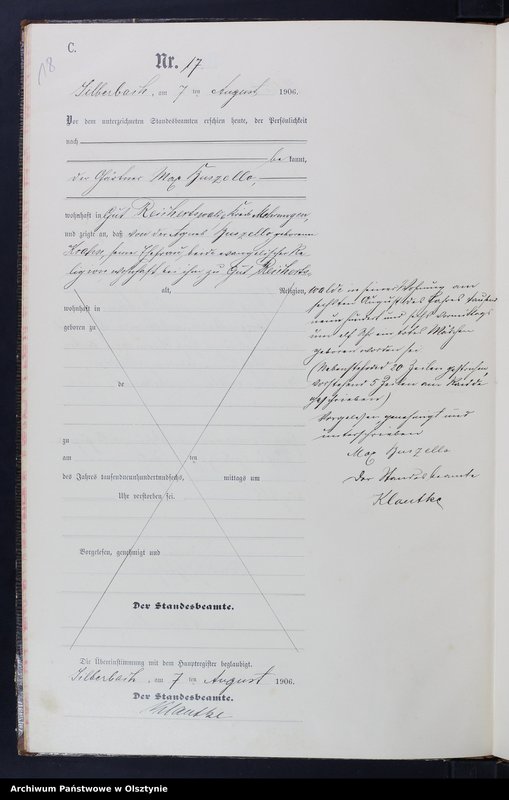 C.
18
Nr. 17
Silberbach, am 7 ten August 1906.
Vor dem unterzeichneten Standesbeamten erschien heute, der Persönlichkeit
nach
be kannt,
der Gärtner Max Huszella,
wohnhaft in Gut Reichertswalde, Kreis Mohrungen
und zeigte an, daß von der Agnes Huszella geborenen
seiner Ehefrau, beide evangelischer Re-
ligion wohnhaft bei ihm zu Gut Reicherts-
alt, Religion,
wohnhaft in
geboren zu
de
zu
am ten
des Jahres tausendneunhundertundsechs, mittags um
Uhr verstorben sei.
Vorgelesen, genehmigt und
Der Standesbeamte.
Die Übereinstimmung mit dem Hauptregister beglaubigt.
Silberbach, am 7 ten August 1906.
Der Standesbeamte.
Klautke
walde in seiner Wohnung am
sechsten August des Jahres tausend
neunhundert und sechs Vormittags
um elf Uhr ein totes Mädchen
geboren worden sei
(Nebenstehende 20 Zeilen gestrichen,
vorstehend 5 Zeilen am Rande
geschrieben)
Vorgelesen genehmigt und
unterschrieben
Max Huszella
Der Standesbeamte
Klautke
Archiwum Państwowe w Olsztynie